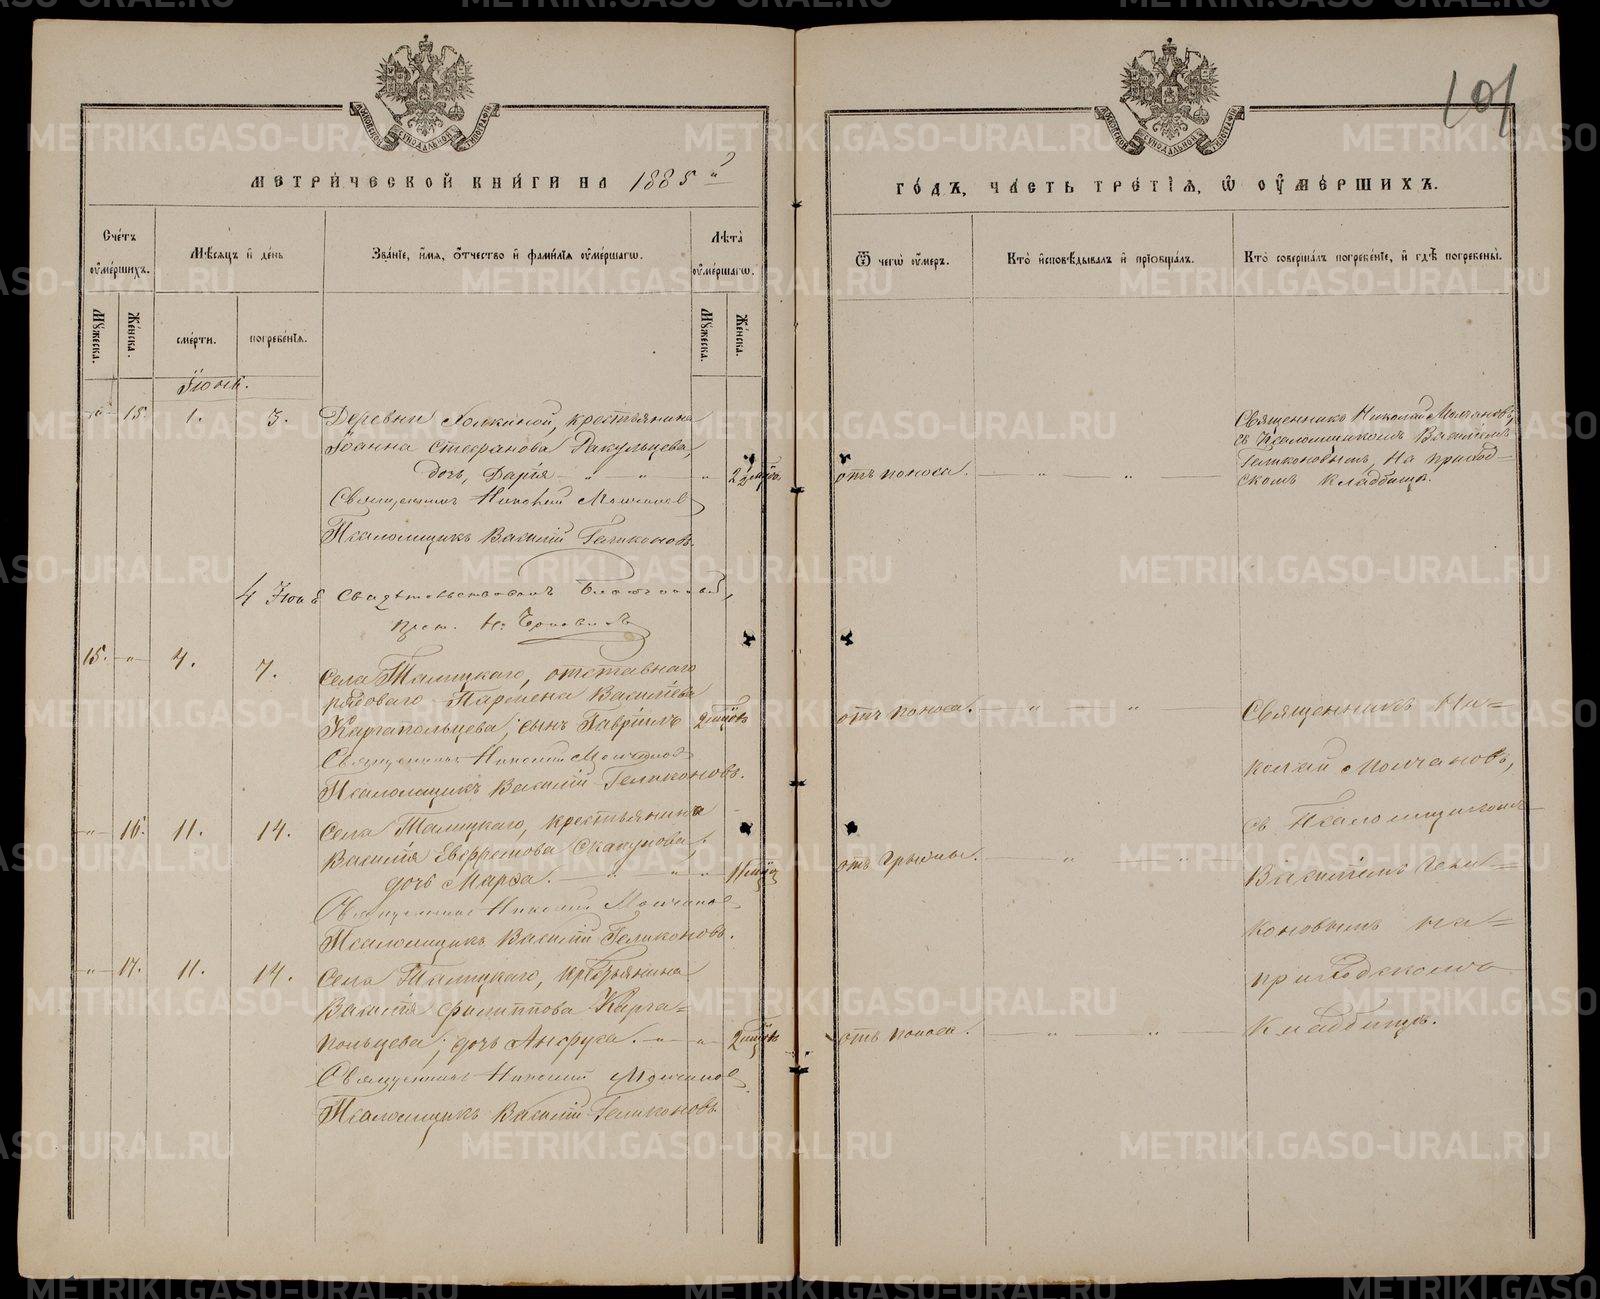 МЕТРИ́ЧЕСКОЙ КНИ́ГИ НА 1885 й
Сче́тъ ᲂу҆ме́ршихъ.
Мѣ́сяцъ и҆ де́нь
Зва́нїе, и҆́мя, ѻ҆́тчество и҆ фами́лїя ᲂу҆ме́ршагѡ.
Лѣ́та ᲂу҆ме́ршагѡ.
Мꙋ́жеска.
Же́нска.
сме́рти.
погребе́нїя.
Мꙋ́жеска.
Же́нска.
Іюнь.
" 15. 1. 3. Деревни крестьянина
Іоанна Стефанова Ракульцева,
дочь, Дарія " " "
Священникъ Николай Молчановъ
Псаломщикъ Василій Геликоновъ.
4 Іюня Свидѣтельствовалъ Благочинный,
15. " 4. 7. Села Талицкаго, отставнаго
рядоваго Пармена Василіева
Каргапольцева, сынъ Гавріилъ 2 мцовъ
Священникъ Николай Молчановъ
Псаломщикъ Василій Геликоновъ.
" 16. 11. 14. Села Талицкаго, крестьянина
Василія Евфремова Скакунова,
дочь Марѳа. " " " 11 мцовъ
Священникъ Николай Молчановъ
Псаломщикъ Василій Геликоновъ.
" 17. 11. 14. Села Талицкаго, крестьянина
Василія Филиппова Карга=
польцева, дочь Анфуса. " " 2 мцовъ
Священникъ Николай Молчановъ
Псаломщикъ Василій Геликоновъ.
101
ГО́ДЪ, ЧА́СТЬ ТРЕ́ТЇѦ, Ѡ҆ ОУ҆МЕ́РШИХЪ.
Ѿ чегѡ̀ ᲂу҆́меръ.
Кто̀ и҆сповѣ́дывалъ и҆ прїобща́лъ.
Кто̀ соверша́лъ погребе́нїе, и҆ гдѣ̀ погребены̀.
Священникъ Николай Молчановъ,
съ Псаломщикомъ Василіемъ
Геликоновымъ, на приход=
скомъ кладбищѣ.
отъ поноса. " "
отъ поноса. " " Священникъ Ни=
колай Молчановъ,
съ Псаломщикомъ
отъ грыжи. " " Василіемъ Гели=
коновымъ на
приходскомъ
отъ поноса. " " кладбищѣ.
METRIKI.GASO-URAL.RU